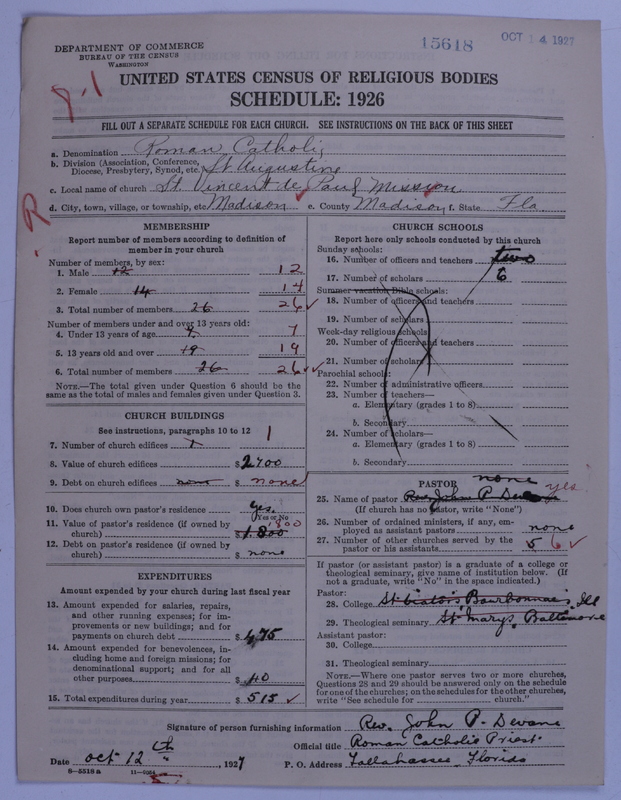 15618 OCT 14 1927
DEPARTMENT OF COMMERCE
BUREAU OF THE CENSUS
WASHINGTON
UNITED STATES CENSUS OF RELIGIOUS BODIES
SCHEDULE: 1926
FILL OUT A SEPARATE SCHEDULE FOR EACH CHURCH. SEE INSTRUCTIONS ON THE BACK OF THIS SHEET
a. Denomination Roman Catholic
b. Division (Association, Conference,
Diocese, Presbytery, Synod, etc. St. Augustine
c. Local name of church St. Vincent de Paul Mission
d. City, town, village, or township, etc Madison e. County Madison f. State Fla.
MEMBERSHIP
Report number of members according to definition of
member in your church
Number of members, by sex:
1. Male 12 12
2. Female 14 14
3. Total number of members 26 26
Number of members under and over 13 years old:
4. Under 13 years of age 7 7
5. 13 years old and over 19 19
6. Total number of members 26 26
NOTE.—The total given under Question 6 should be the
same as the total of males and females given under Question 3.
CHURCH BUILDINGS
See instructions, paragraphs 10 to 12
7. Number of church edifices 1 1
8. Value of church edifices $ 2700
9. Debt on church edifices none $ none
10. Does church own pastor's residence yes
Yes or No
11. Value of pastor's residence (if owned by 1,800
church) $ 1,800
12. Debt on pastor's residence (if owned by
church) $ none
EXPENDITURES
Amount expended by your church during last fiscal year
13. Amount expended for salaries, repairs,
and other running expenses; for im-
provements or new buildings; and for
payments on church debt $ 475
14. Amount expended for benevolences, in-
cluding home and foreign missions; for
denominational support; and for all
other purposes $ 40
15. Total expenditures during year $ 515
CHURCH SCHOOLS
Report here only schools conducted by this church
Sunday schools:
16. Number of officers and teachers two
17. Number of scholars 6
Summer vacation Bible schools:
18. Number of officers and teachers
19. Number of scholars
Week-day religious schools:
20. Number of officers and teachers
21. Number of scholars
Parochial schools:
22. Number of administrative officers
23. Number of teachers—
a. Elementary (grades 1 to 8)
b. Secondary
24. Number of scholars—
a. Elementary (grades 1 to 8)
b. Secondary
PASTOR none
25. Name of pastor Rev. John P. Devane yes
(If church has no pastor, write "None")
26. Number of ordained ministers, if any, em-
ployed as assistant pastors none
27. Number of other churches served by the
pastor or his assistants 5 6
If pastor (or assistant pastor) is a graduate of a college or
theological seminary, give name of institution below. (If
not a graduate, write "No" in the space indicated.)
Pastor:
28. College St. Viator's Bourbonnais, Ill
29. Theological seminary St. Marys, Baltimore
Assistant pastor:
30. College
31. Theological seminary
NOTE.—Where one pastor serves two or more churches,
Questions 28 and 29 should be answered only on the schedule
for one of the churches; on the schedules for the other churches,
write "See schedule for church."
Signature of person furnishing information Rev. John P. Devane
Official title Roman Catholic Priest
Date Oct 12th, 1927 P. O. Address Tallahassee, Florida
8—5518 a